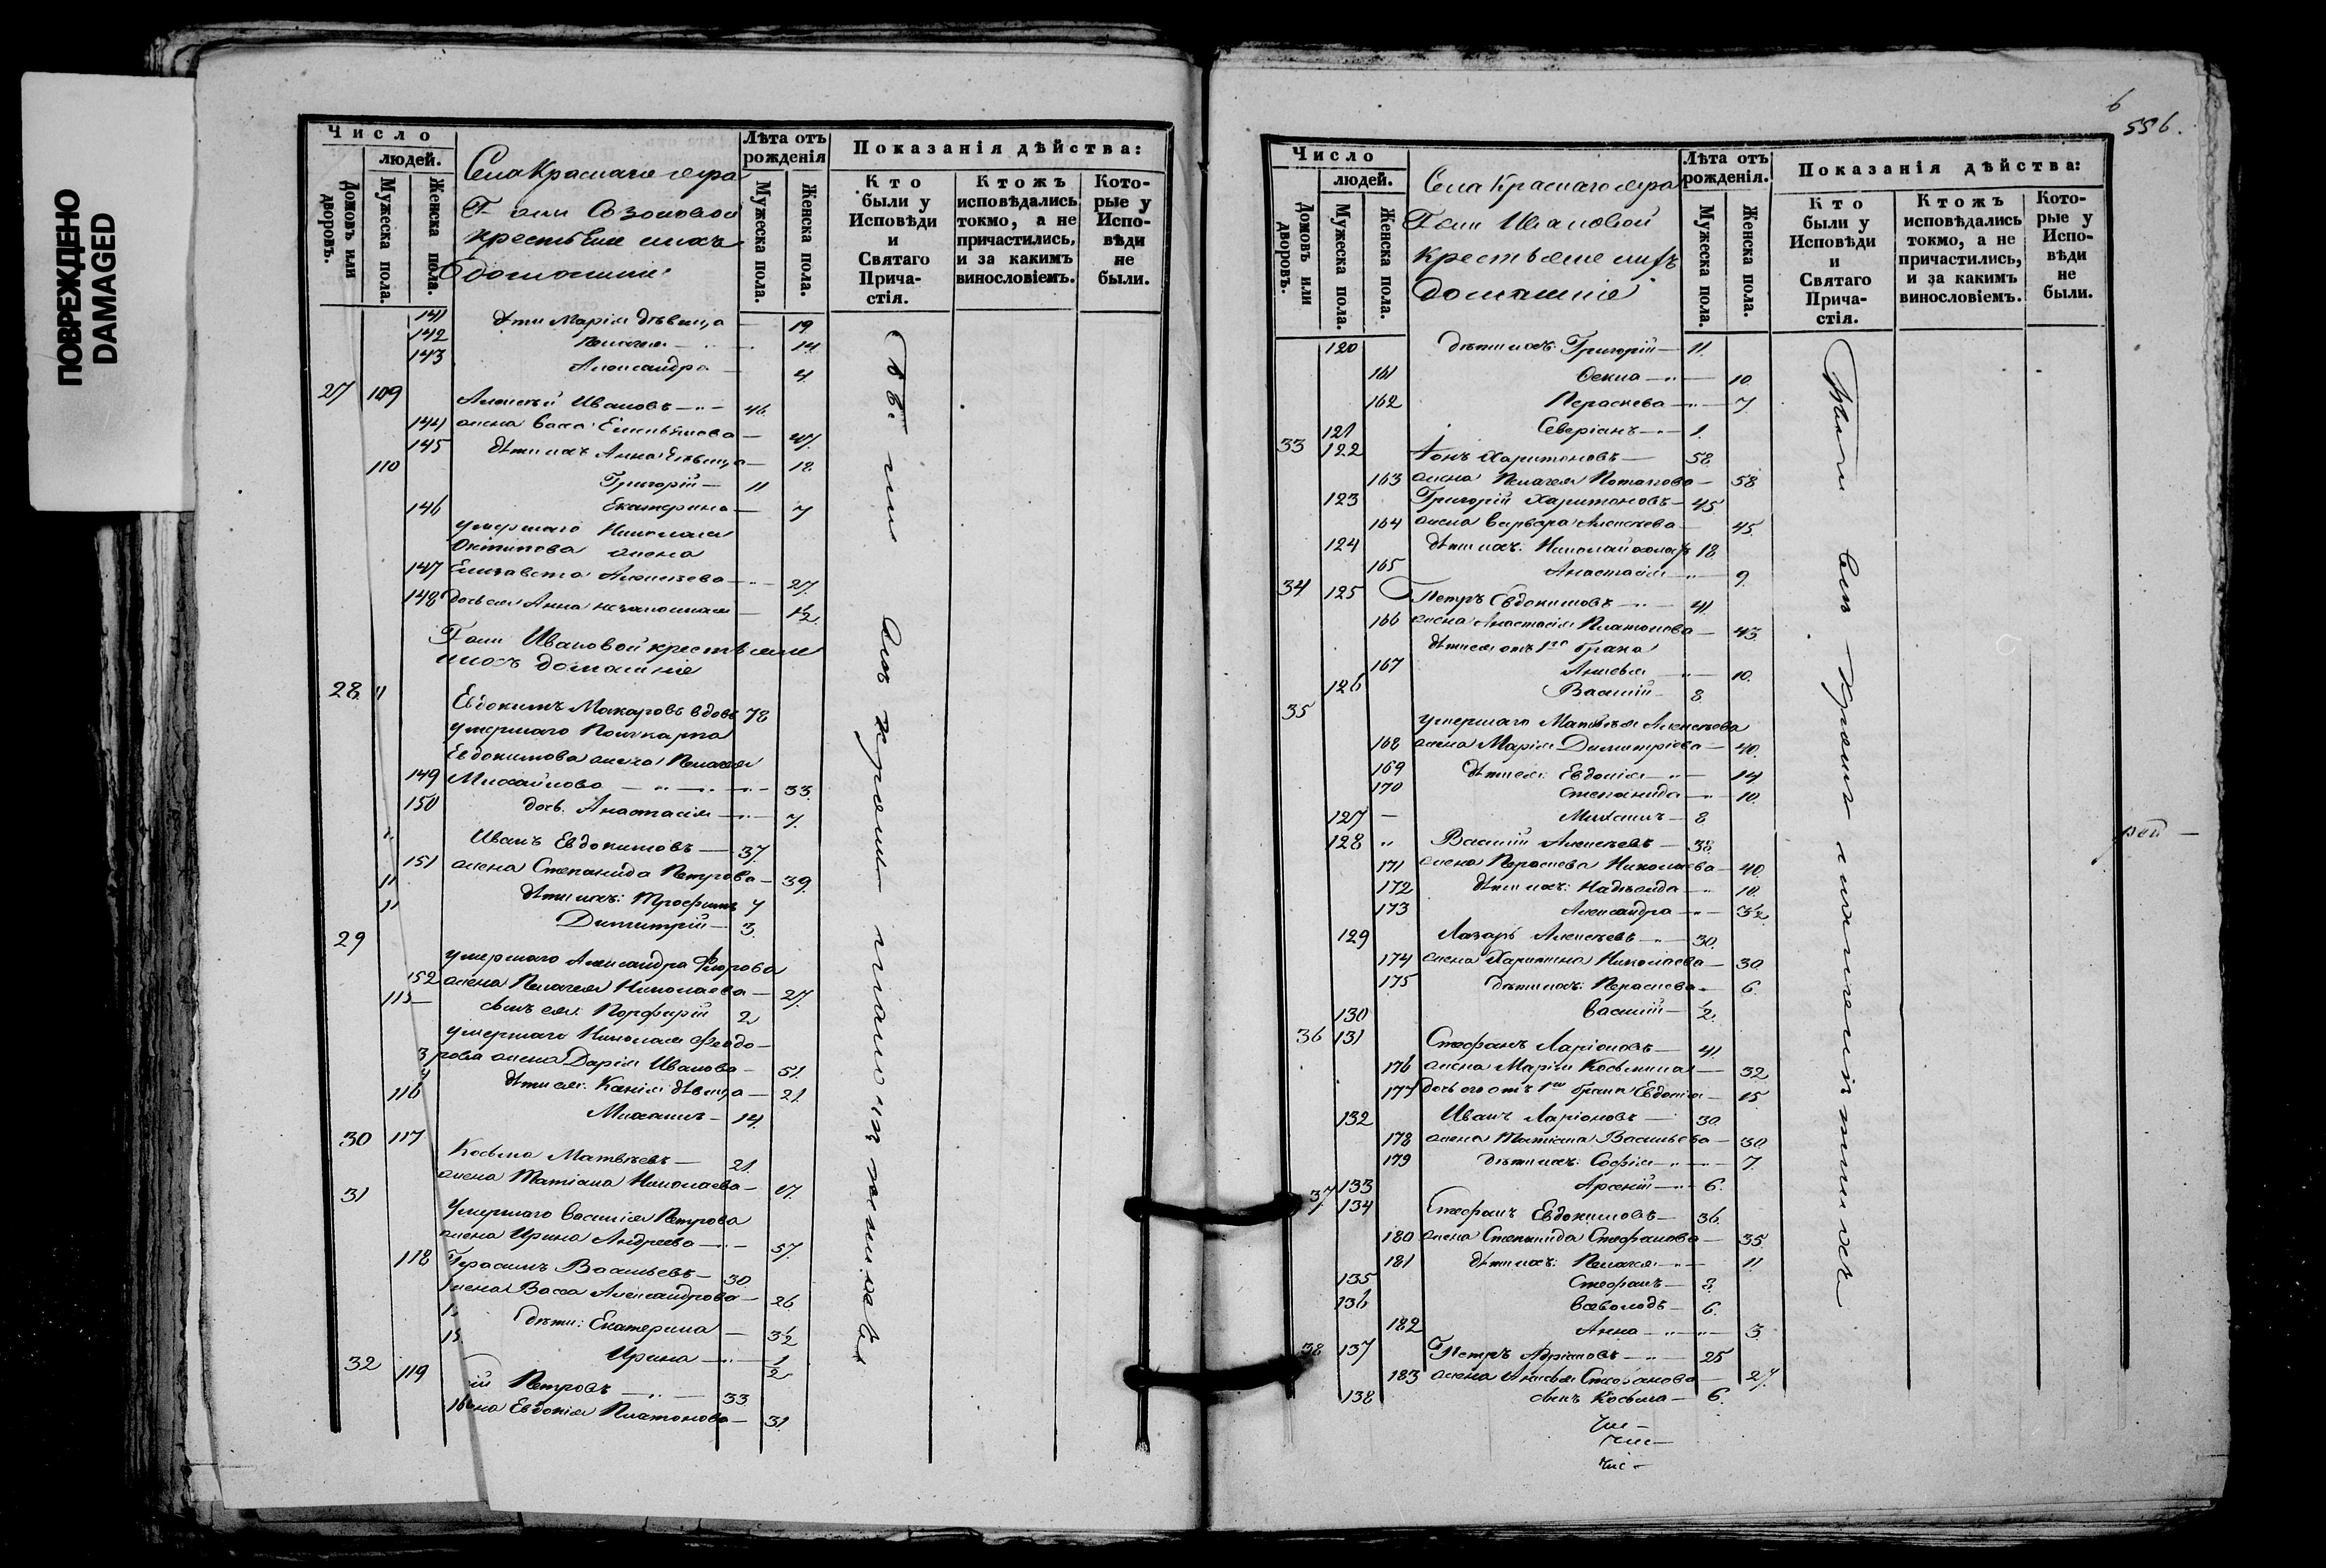 ПОВРЕЖДЕНО
DAMAGED
Число
людей.
Домовъ или дворовъ.
Мужеска пола.
Женска пола.
Села Краснаго яра
Г-жи Созоновой
крестьяне и ихъ
домашніи
Лѣта отъ рожденія
Мужеска пола.
Женска пола.
Показанія дѣйства:
Кто были у Исповѣди и Святаго Причастія.
Ктожъ исповѣдались токмо, а не причастились, и за какимъ винословіемъ.
Которые у Исповѣди не были.
141 дѣти Марія дѣвица — 19
142 Пелагея — 14
143 Александра — 4
27 109 Алексѣй Ивановъ — 46
144 жена Васса Емельянова — 47
145 дѣти ихъ Анна дѣвица — 18
110 Григорій — 11
146 Екатерина — 7
умершаго Николая
жена
147 Елизавета Алексѣева — 27
148 дочь ея Анна — 1/2
Г-жи Ивановой крестьяне
и ихъ домашніе
28 " Евдокимъ Макаровъ вдовъ 78
умершаго Поликарпа
Евдокимова жена Пелагея
149 Михайлова — 33
150 дочь Анастасія — 7
" Иванъ Евдокимовъ — 37
151 жена Степанида Петрова — 39
" дѣти ихъ: Трофимъ 7
" Димитрій — 3
29
умершаго Александра Флорова
152 жена Пелагея Николаева — 27
115 сынъ ея: Порфирій 2
умершаго Николая Феодо-
рова жена Дарія Иванова — 51
дѣти ея: Ксенія дѣвица — 21
116 Михаилъ — 14
30 117
Косьма Матвѣевъ — 21
жена Татіана Николаева — 17
31
умершаго Василія Петрова
жена Ирина Андреева — 57
118 Герасимъ Васильевъ — 30
жена Васса Александрова — 26
дѣти: Екатерина — 3 1/2
Ирина — 1/2
32 119
Петровъ — 33
жена Евдокія Платонова — 31
6
556.
Число
людей.
Домовъ или дворовъ.
Мужеска пола.
Женска пола.
Села Краснаго яра
Г-жи Ивановой
крестьяне и ихъ
домашніе
Лѣта отъ рожденія.
Мужеска пола.
Женска пола.
Показанія дѣйства:
Кто были у Исповѣди и Святаго Причастія.
Ктожъ исповѣдались токмо, а не причастились, и за какимъ винословіемъ.
Которые у Исповѣди не были.
120 дѣти ихъ: Григорій — 11
161 Фекла — 10
162 Параскева — 7
121 Северіанъ — 1
33 122 Іонъ Харитоновъ — 58
163 жена Пелагея Потапова — 58
123 Григорій Харитоновъ — 45
164 жена Варвара Алексѣева — 45
124 дѣти ихъ: Николай холостъ 18
165 Анастасія — 9
34 125 Петръ Евдокимовъ — 41
166 жена Анастасія Платонова — 43
дѣти ея отъ 1го брака
167 — 10
126 Василій — 8
35
умершаго Матвѣя Алексѣева
168 жена Марія Димитріева — 40
169 дѣти ея: Евдокія — 14
170 Степанида — 10
127 — Михаилъ — 8
128 " Василій Алексѣевъ — 38
171 жена Параскева Николаева — 40
172 дѣти ихъ: Надежда — 10
173 Александра — 3 1/2
129 Лазарь Алексѣевъ — 30
174 жена Харитина Николаева — 30
175 дѣти ихъ: Параскева — 6
130 Василій — 1/2
36 131 Стефанъ Ларіоновъ — 41
176 жена Марія Косьмина — 32
177 дочь его отъ 1го брака Евдокія — 15
132 Иванъ Ларіоновъ — 30
178 жена Татіана Васильева — 30
179 дѣти ихъ: Софія — 7
133 Арсеній — 6
37 134 Стефанъ Евдокимовъ — 36
180 жена Степанида Стефанова — 35
181 дѣти ихъ: Пелагея — 11
135 Стефанъ — 8
136 Всеволодъ — 6
182 Анна — 3
38 137 Петръ Адріановъ — 25
183 жена Стефанова — 27
138 сынъ Косьма — 6